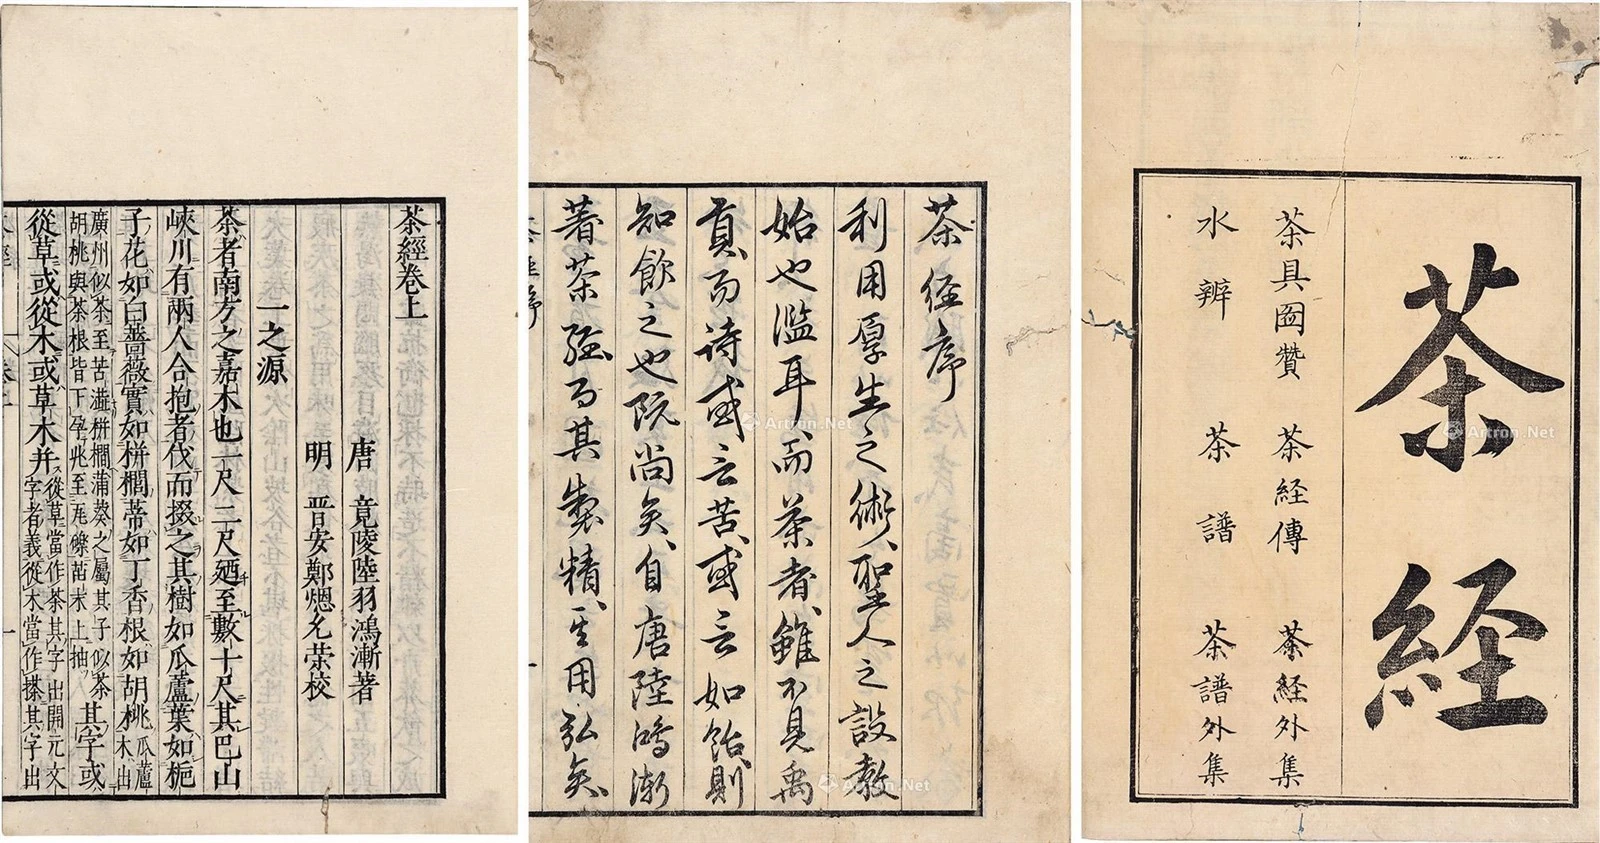 茶経
茶具圖賛 茶経傳 茶経外集
水辨 茶譜 茶譜外集
茶経序
利用厚生之術、聖人之設教
始也濫耳、而茶者、雖不見禹
貢、而詩或言苦、或言如飴、則
知飲之也既尚矣、自唐陸鴻漸
著茶経、而其製精、其用弘矣、
茶經卷上
唐 竟陵陸羽鴻漸著
明 晉安鄭煾允榮校
一之源
茶者南方之嘉木也一尺二尺廼至數十尺其巴山
峽川有兩人合抱者伐而掇之其樹如瓜蘆葉如梔
子花如白薔薇實如栟櫚蒂如丁香根如胡桃瓜蘆木出
廣州似茶至苦澁栟櫚蒲葵之屬其子似茶
胡桃與茶根皆下孕兆至瓦礫苗木上抽其字或
從草或從木或草木并從草當作茶其字出開元文
字者義從木當作搽其字出
Artron.Net
Artron.Net
Artron.Net
Artron.Net